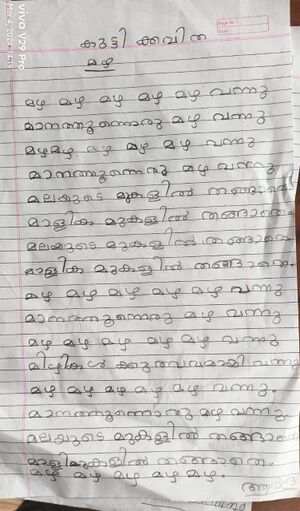 കുട്ടി കവിത
മഴ
മഴ മഴ മഴ മഴ മഴ വന്നു
മാനത്തുന്നൊരു മഴ വന്നു
മഴമഴ മഴ മഴ മഴ വന്നു
മാനത്തുന്നൊരു മഴ വന്നു
മലയുടെ മുകളിൽ തങ്ങാതെ
മാളിക മുകളിൽ തങ്ങാതെ
മലയുടെ മുകളിൽ തങ്ങാതെ
മാളിക മുകളിൽ തങ്ങാതെ.
മഴ മഴ മഴ മഴ മഴ വന്നു
മാനത്തുന്നൊരു മഴ വന്നു
മഴ മഴ മഴ മഴ മഴ വന്നു
മിഴികൾ വന്നു
മഴ മഴ മഴ മഴ മഴ വന്നു.
മാനത്തുന്നൊരു മഴ വന്നു.
മലയുടെ മുകളിൽ തങ്ങാതെ
മാളിമുകളിൽ തങ്ങാതെ.
മഴ മഴ മഴ മഴ മഴ.
vivo Y29 Pro